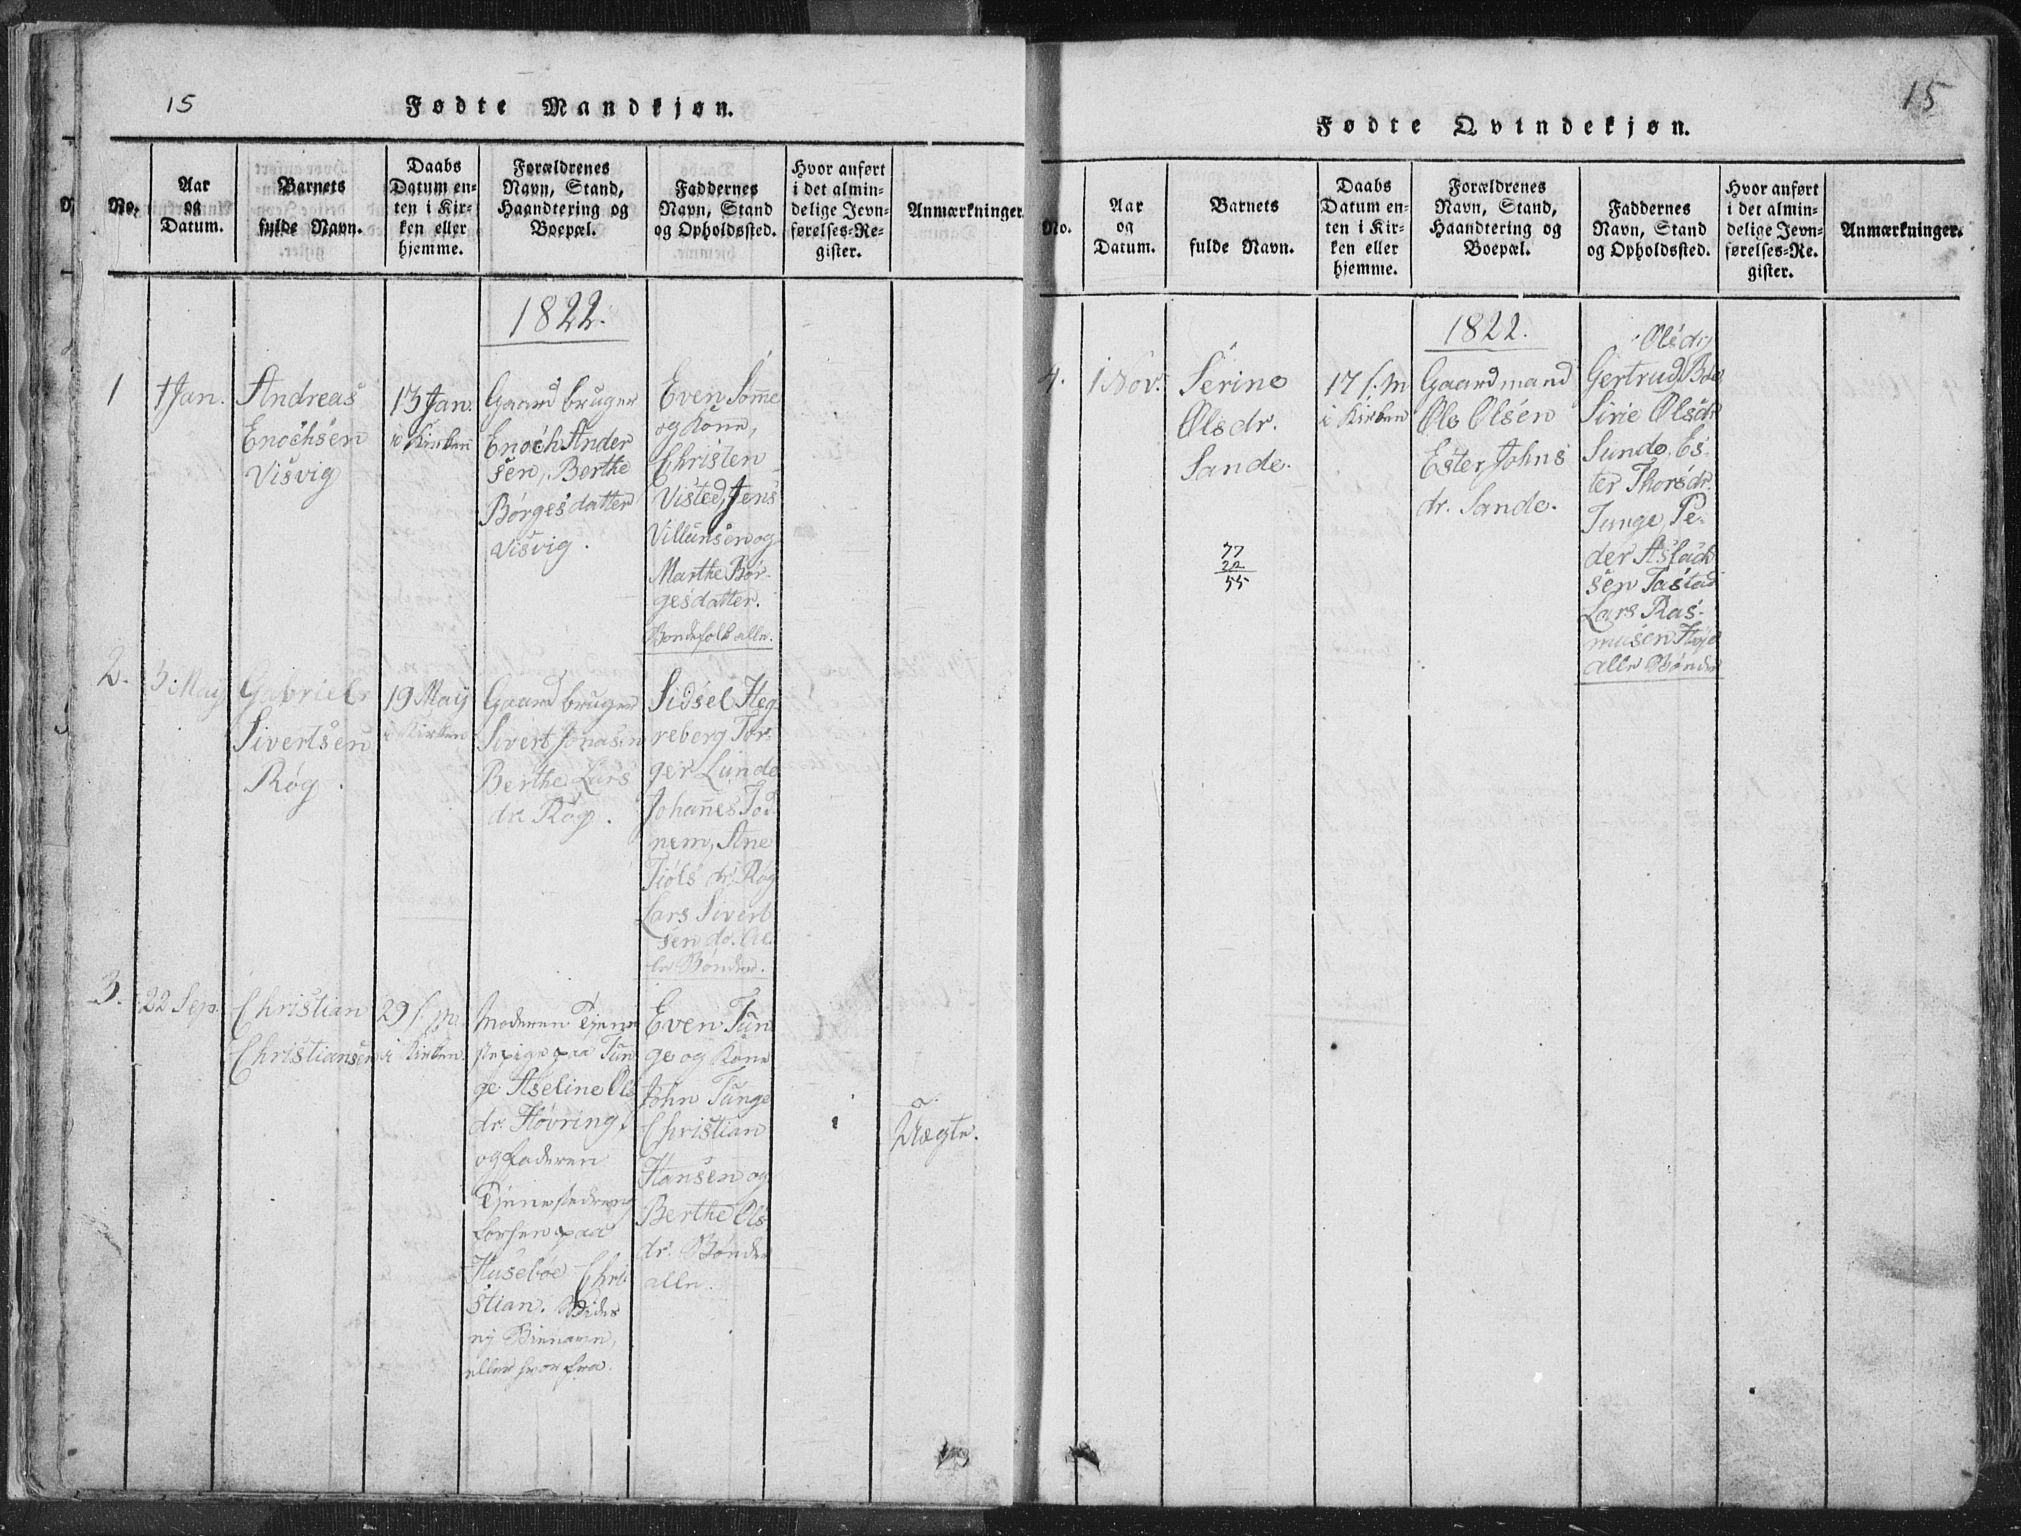 15
Fødte Mandkjøn.
No.
Aar
og
Datum.
Barnets
fulde Navn.
Daabs
Datum en-
ten i Kir-
ken eller
hjemme.
Forældrenes
Navn, Stand,
Haandtering og
Boepæl.
Faddernes
Navn, Stand
og Opholdssted.
Hvor anført
i det almin-
delige Jevn-
førelses-Re-
gister.
Anmærkninger.
1822.
1
1 Jan.
Andreas
Enochsen
Visvig
13 Jan.
i Kirken
Gaardbruger
Enoch Ander
sen, Berthe
Børgesdatter
Visvig.
Even Somme
og Kone,
Christen
Visted, Jens
Villumsen og
Marthe Bør-
gesdatter.
Bondefolk alle.
2.
3 May
Gabriel
Sivertsen
Røg.
19 May
i Kirken
Gaardbruger
Sivert Jonasen
Berthe Lars
dr. Røg.
Sidsel Heg
reberg Tor-
ger Lunde
Johannes Tod-
nem, Ane
Tiøls dr. Røg
Lars Sivert
sen do. Al-
le Bønder.
3.
22 Sep.
Christian
Christiansen
29 s. M.
i Kirken.
Moderen Tjene
stepige paa Tun
ge Aseline Ols
dr. Høvring,
og Faderen
Tjenestedreng
forhen paa
Husebøe Chri-
stian. Vides
ej Binavn,
eller hvorfra.
Even Tun
ge og Kone
John Tunge
Christian
Hansen og
Berthe Ols
dr. Bønder
alle.
Uægte.
15
Fødte Qvindekjøn.
No.
Aar
og
Datum.
Barnets
fulde Navn.
Daabs
Datum en-
ten i Kir-
ken eller
hjemme.
Forældrenes
Navn, Stand,
Haandtering og
Boepæl.
Faddernes
Navn, Stand
og Opholdssted.
Hvor anført
i det almin-
delige Jevn-
førelses-Re-
gister.
Anmærkninger.
1822.
4.
1 Nov.
Serine
Olsdr.
Sande.
77
22
55
17 s. M
i Kirken
Gaardmand
Ole Olsen
Ester Johns
dr. Sande.
Olsdr
Gertrud Bøe
Sirie Olsdr
Sunde, Es-
ter Thorsdr.
Tunge, Pe-
der Aslach
sen Tastad
Lars Ras-
musen Høje
alle Bønder